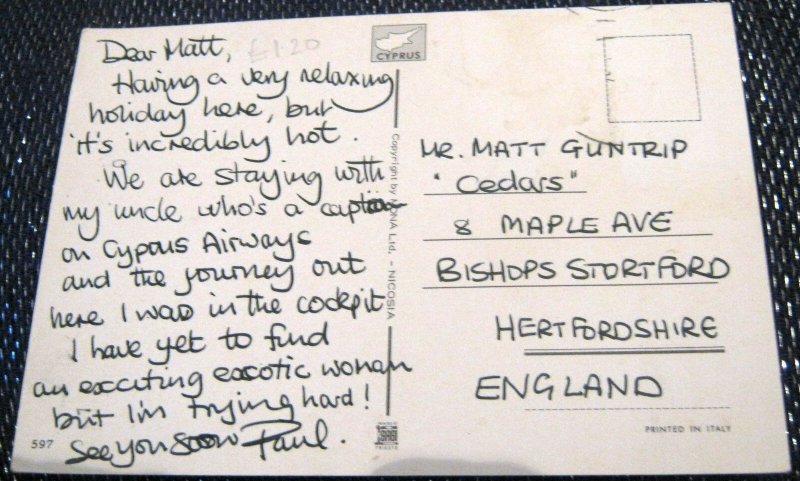 Dear Matt,
£1.20
Having a very relaxing
holiday here, but
it's incredibly hot.
We are staying with
my uncle who's a captain
on Cyprus Airways
and the journey out
here I was in the cockpit
I have yet to find
an exciting exotic woman
but I'm trying hard!
See you soon Paul.
597
CYPRUS
Copyright by Ltd. - NICOSIA
MR. MATT GUNTRIP
"Cedars"
8 MAPLE AVE
BISHOPS STORTFORD
HERTFORDSHIRE
ENGLAND
PRINTED IN ITALY